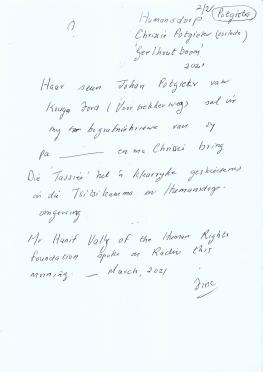 2/2/ Potgieter
?
Humansdorp
Chrissie Potgieter
'Geelhoutboom'
2021
Haar seun Johan Potgieter van
Kruga Ford (Voortrekkerweg) sal vir
my begrafnisbriewe van sy
pa ______ en ma Chrissie bring
Die 'Tassies' het 'n kleurryke geskiedenis
in die Tsitsikamma en Humansdorp-
omgewing
Mr Hanif Vally of the Human Rights
Foundation spoke on Radio this
morning. — March, 2021